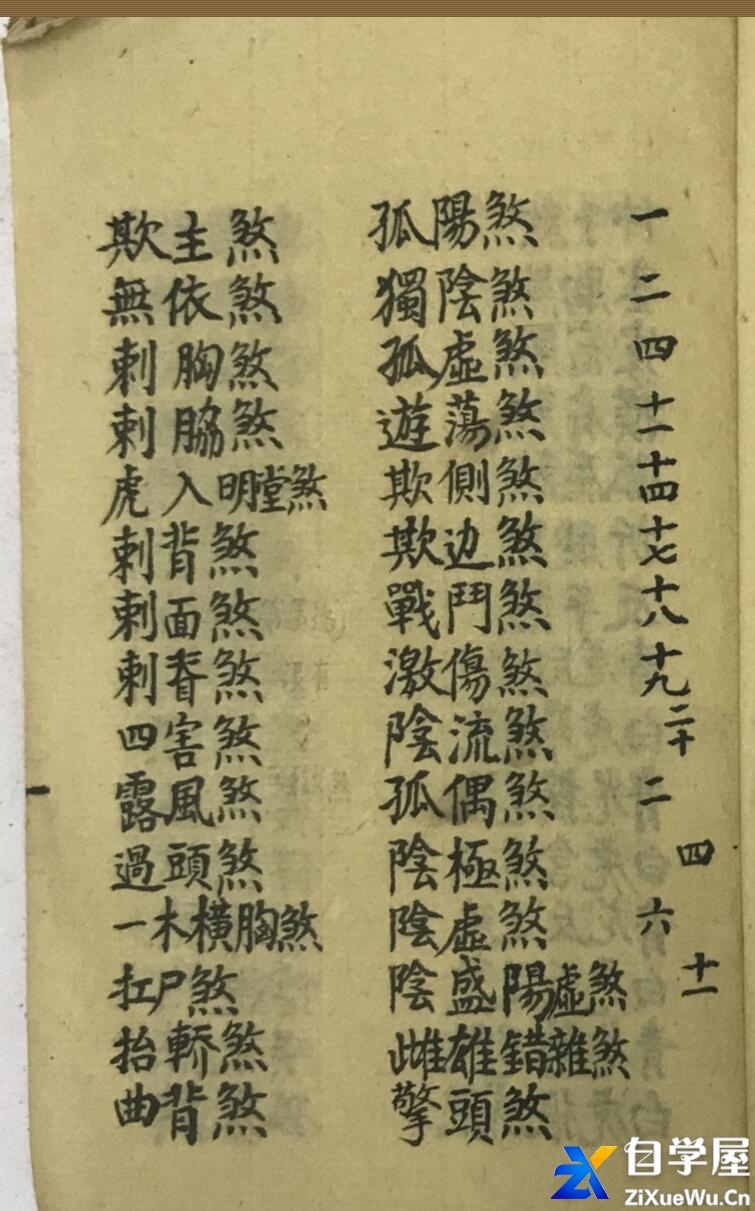 一 孤陽煞 欺主煞
二 獨陰煞 無依煞
四 孤虛煞 刺胸煞
十一 遊蕩煞 刺脇煞
十四 欺側煞 虎入明堂煞
十七 欺边煞 刺背煞
十八 戰鬥煞 刺面煞
十九 激傷煞 刺脊煞
二十 陰流煞 四害煞
二 孤偶煞 露風煞
四 陰極煞 過頭煞
六 陰虛煞 一木橫胸煞
十一 陰盛陽虛煞 扛尸煞
雌雄錯雜煞 抬轎煞
擎頭煞 曲背煞
自学屋
ZiXueWu.Cn